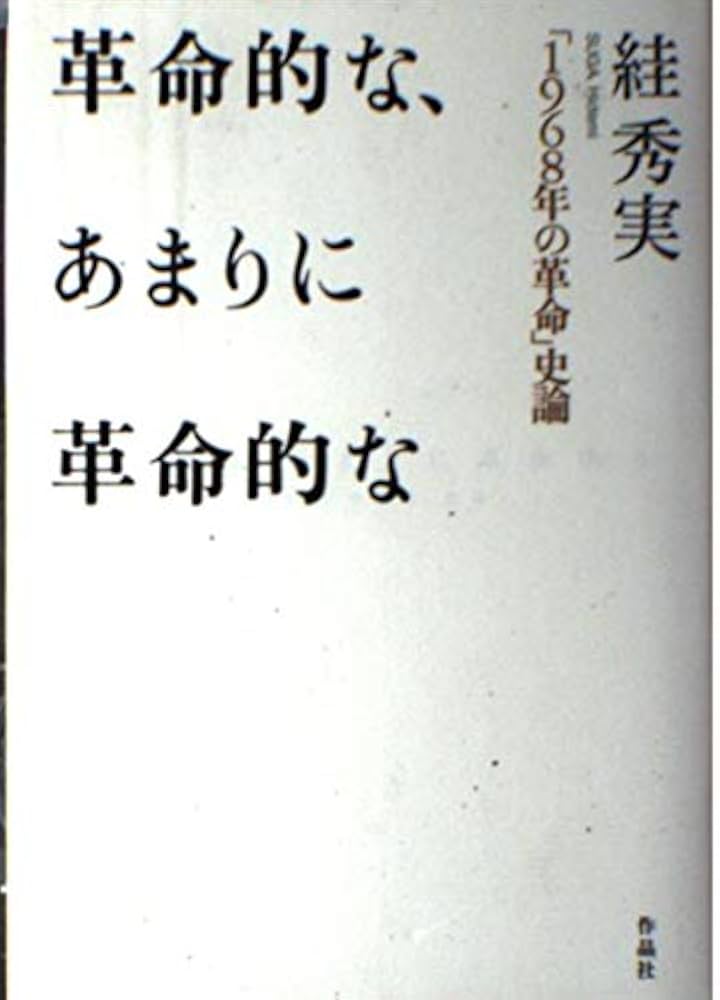 革命的な、
あまりに
革命的な
「1968年の革命」史論
絓 秀実
SUGA Hidemi
作品社